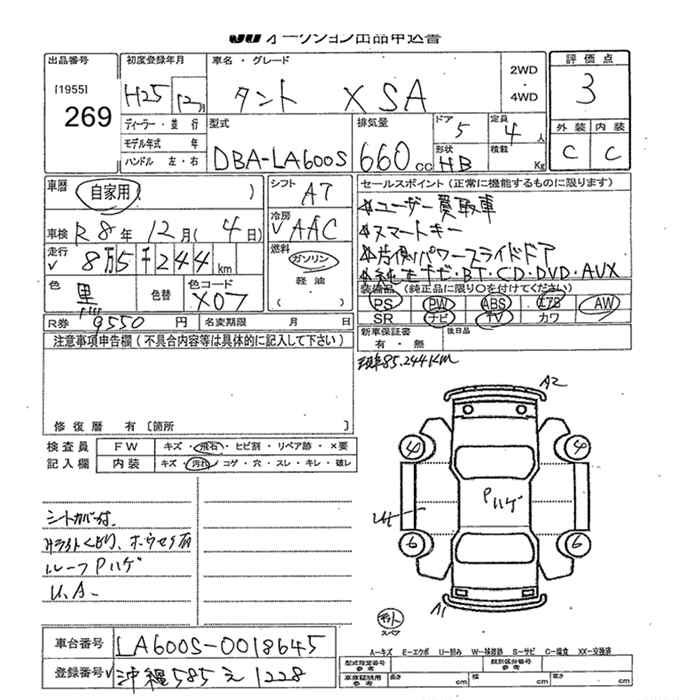 JU オークション出品申込書
出品番号 初度登録年月 車名・グレード 評価点
[1955] 269 H25 12月 タント XSA 2WD・4WD 3
ディーラー・並行 型式 排気量 ドア 5 定員 4人 外装 内装
モデル年式 年 DBA-LA600S 660cc 形状 HB 積載 Kg C C
ハンドル 左・右
車歴 自家用( ) シフト A7 セールスポイント(正常に機能するものに限ります)
車検 R8年 12月(4日) 冷房 AAC ☆ユーザー買取車
☆スマートキー
走行 8万5千244km 燃料 ガソリン 軽油 ☆片側パワースライドドア
☆純正ナビ・BT・CD・DVD・AUX
色 黒 色替 色コード X07 装備品(純正品に限り○を付けてください)
PS PW ABS エアB AW
R券 9550円 名変期限 月 日 SR ナビ TV カワ
注意事項申告欄(不具合内容等は具体的に記入して下さい) 新車保証書 有・無 後日品
現車85.244KM
修復歴 有 [箇所
検査員 FW キズ・飛石・ヒビ割・リペア跡・×要
記入欄 内装 キズ・汚れ・コゲ・穴・スレ・キレ・破レ
A2
4 4
Pハゲ
6 6
A1
シートカバー付
Hライトくもり、
ルーフPハゲ
U.A-
スペア
車台番号 LA600S-0018645
A-キズ E-エクボ U-凹み W-補修跡 S-サビ C-腐食 XX-交換済
登録番号 沖縄585え1228
型式指定番号 参考 類別区分番号 参考
車庫証明用 参考 長さ cm 幅 cm 高さ cm